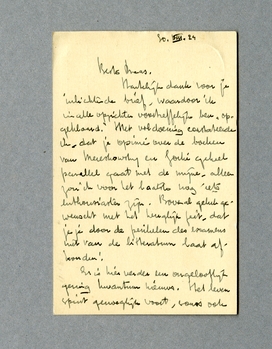 30. VIII. 24
Beste Maes.
Hartelijk dank voor je
inlichtende brief, waardoor ik
in alle opzichten voortreffelijk ben op-
geklaard. Met voldoening constateerde
ik, dat je opinie over de boeken
van Mereschowsky en Gorki geheel
parallel gaat met de mijne, alleen
zou ik voor het laatste nog iets
enthousiaster zijn. Bovenal geluk ge-
wenscht met het heuglijk feit, dat
je je door de perikelen des examens
niet van de litteratuur laat af-
houden!
Er is hier verder een ongelooflijk
gering kwantum nieuws. Het leven
spint genoegelijk voort, ook